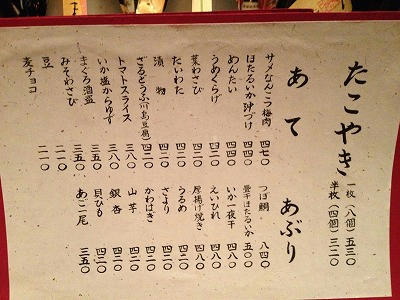 たこやき
一枚(八個)五三〇
半枚(四個)三二〇
あて
サメなんこつ梅肉 四七〇
ほたるいか沖づけ 四四〇
めんたい 四四〇
うめくらげ 四二〇
菜わさび 四二〇
たいわた 四二〇
漬物 四二〇
ざるとうふ(川島豆腐) 四二〇
トマトスライス 三八〇
いか塩からゆず 三八〇
まぐろ酒盗 三五〇
みそわさび 三五〇
豆 二一〇
麦チョコ 二一〇
あぶり
つぼ鯛 八四〇
畳干ほたるいか 五〇〇
いか一夜干 四八〇
えいひれ 四八〇
厚揚げ焼き 四八〇
うるめ 四二〇
さより 四二〇
かわはぎ 四二〇
山芋 四二〇
銀杏 四二〇
貝ひも 四二〇
あご一尾 三五〇